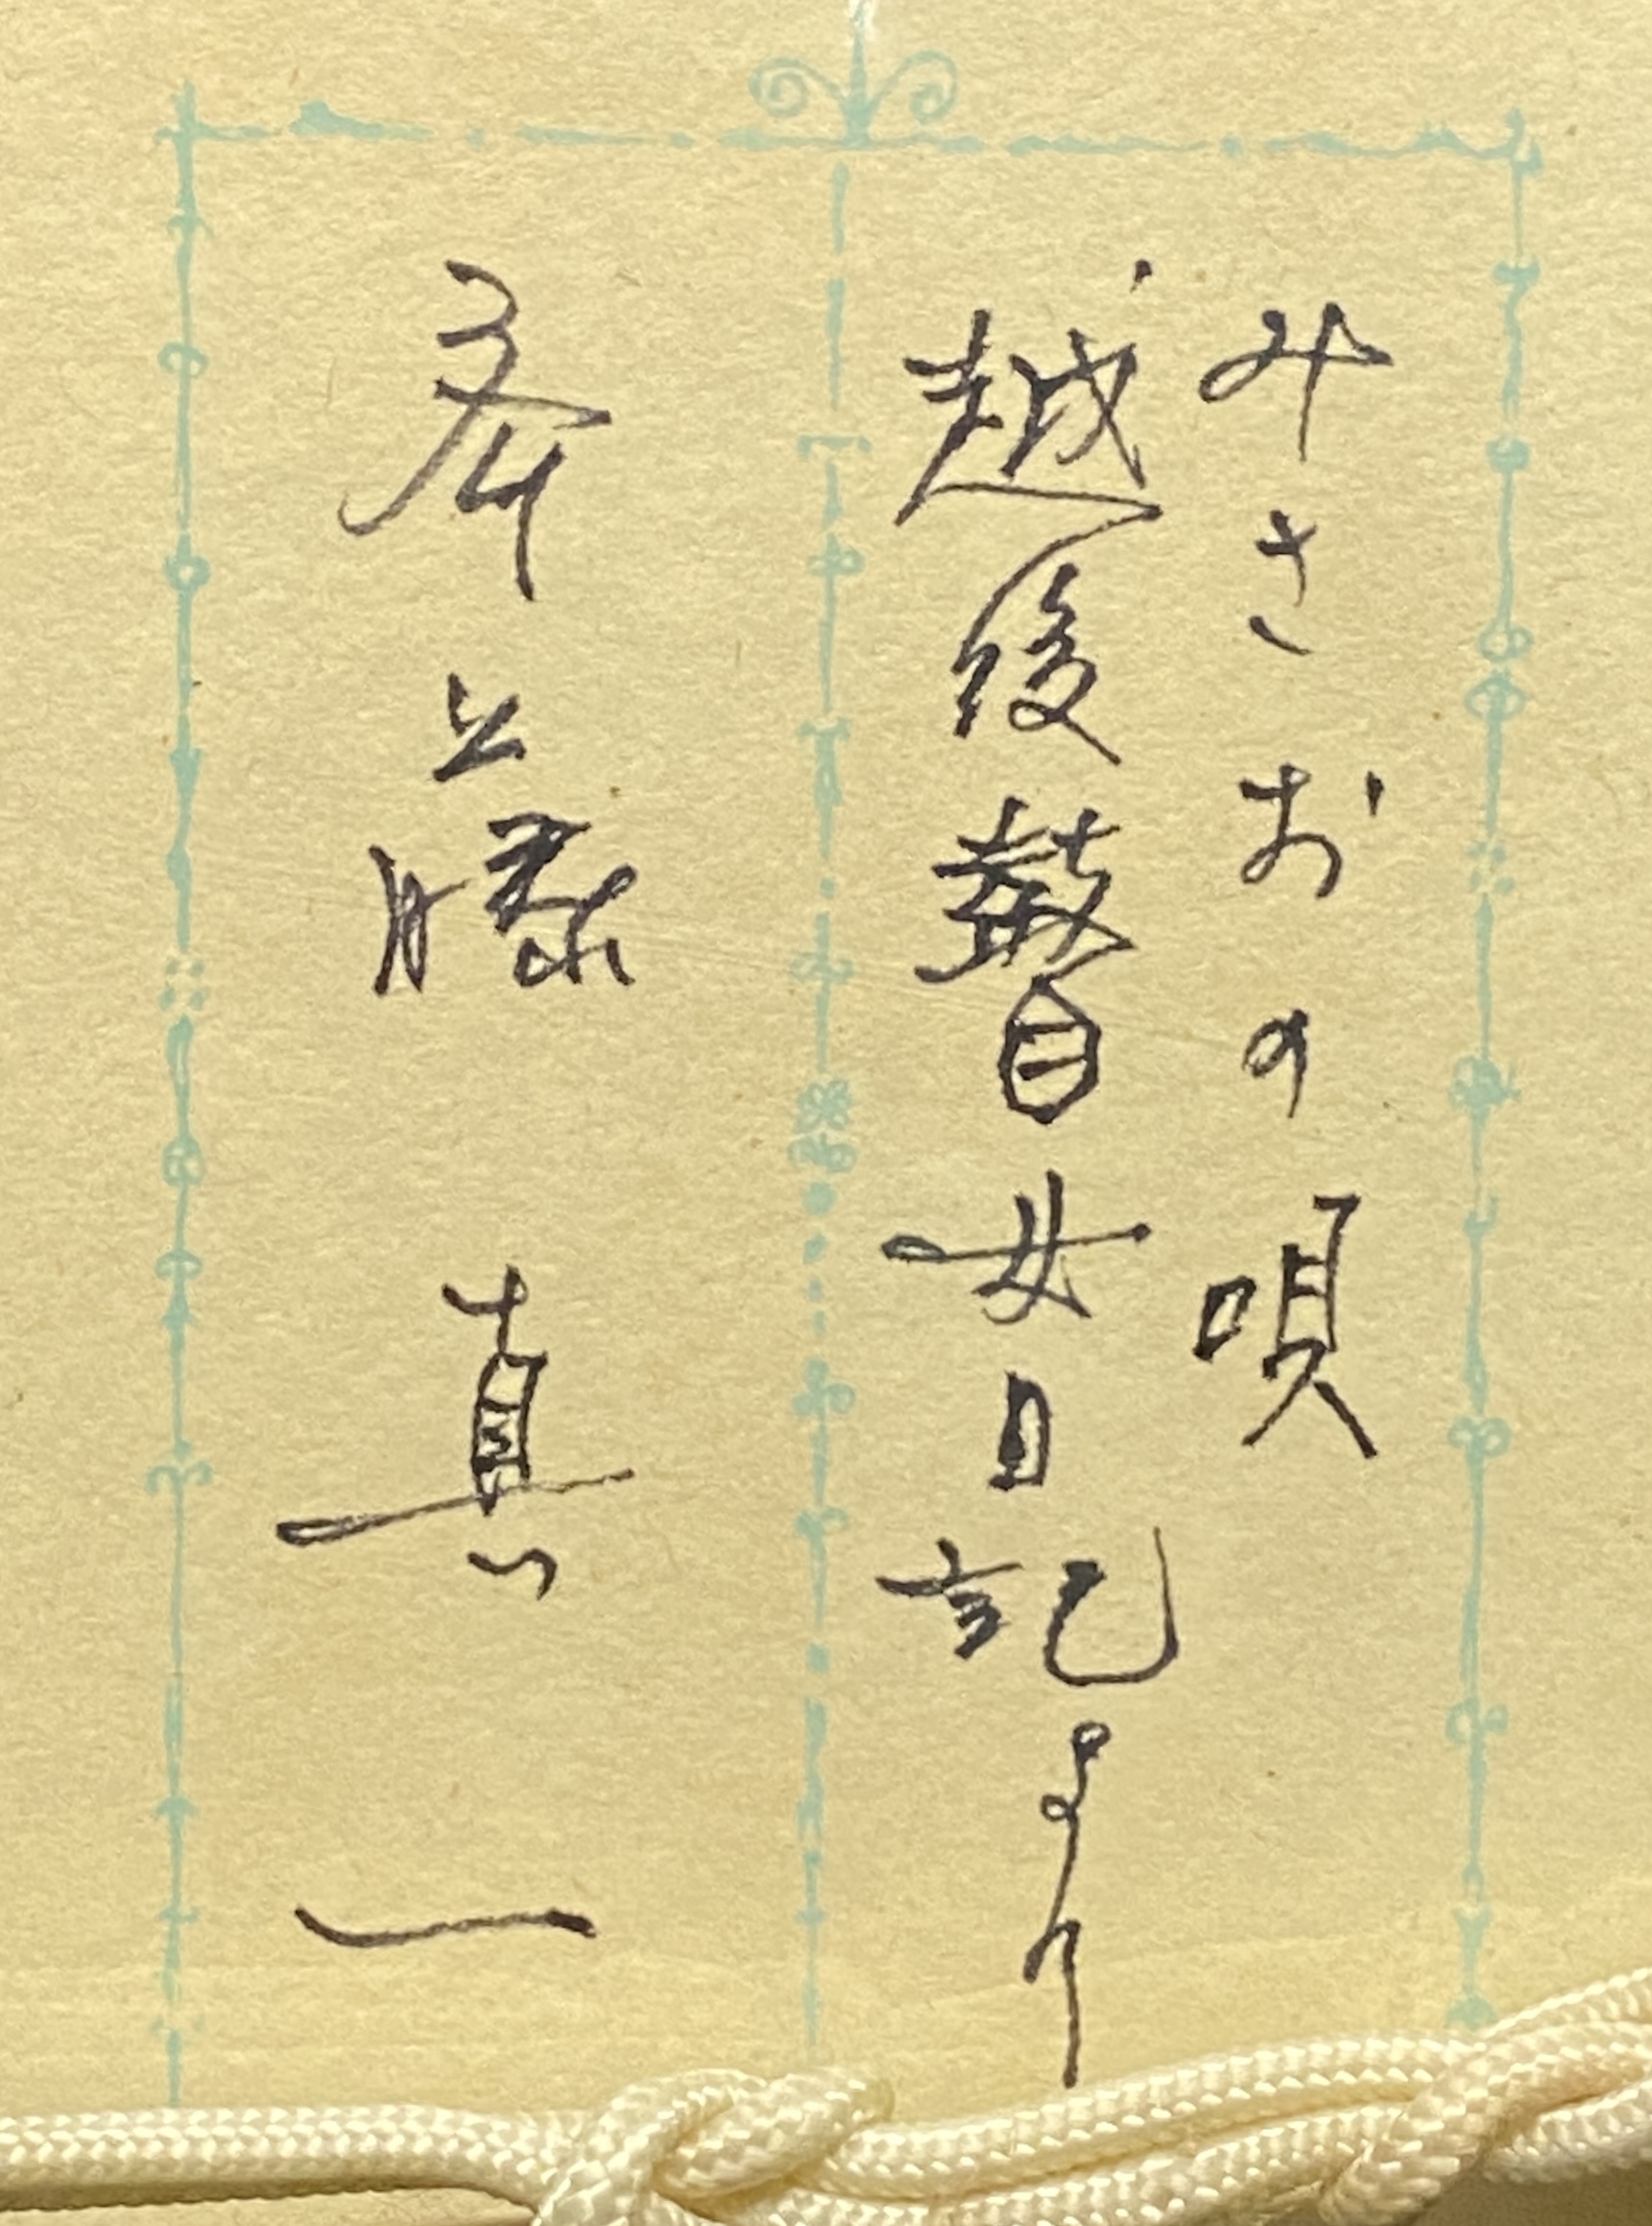 みさおの唄
越後瞽女日記より
斎藤真一